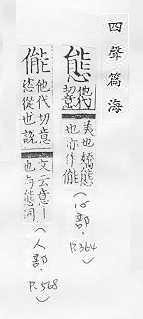 四聲篇海
態 他代切意美也嬌態也亦作㑷(心部.P.364)
㑷 他代切意態從也說文云意一也与態同(人部.P.568)